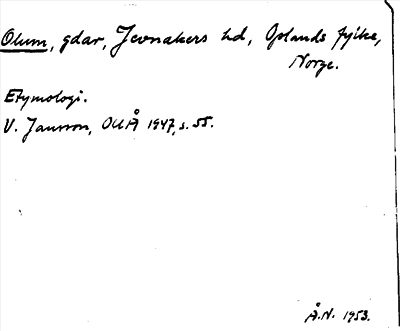 Olum, gdar, Jevnakers hd, Oplands fylke,
Norge.
Etymologi.
V. Jansson, OUÅ 1947, s. 55.
Å.N. 1953.